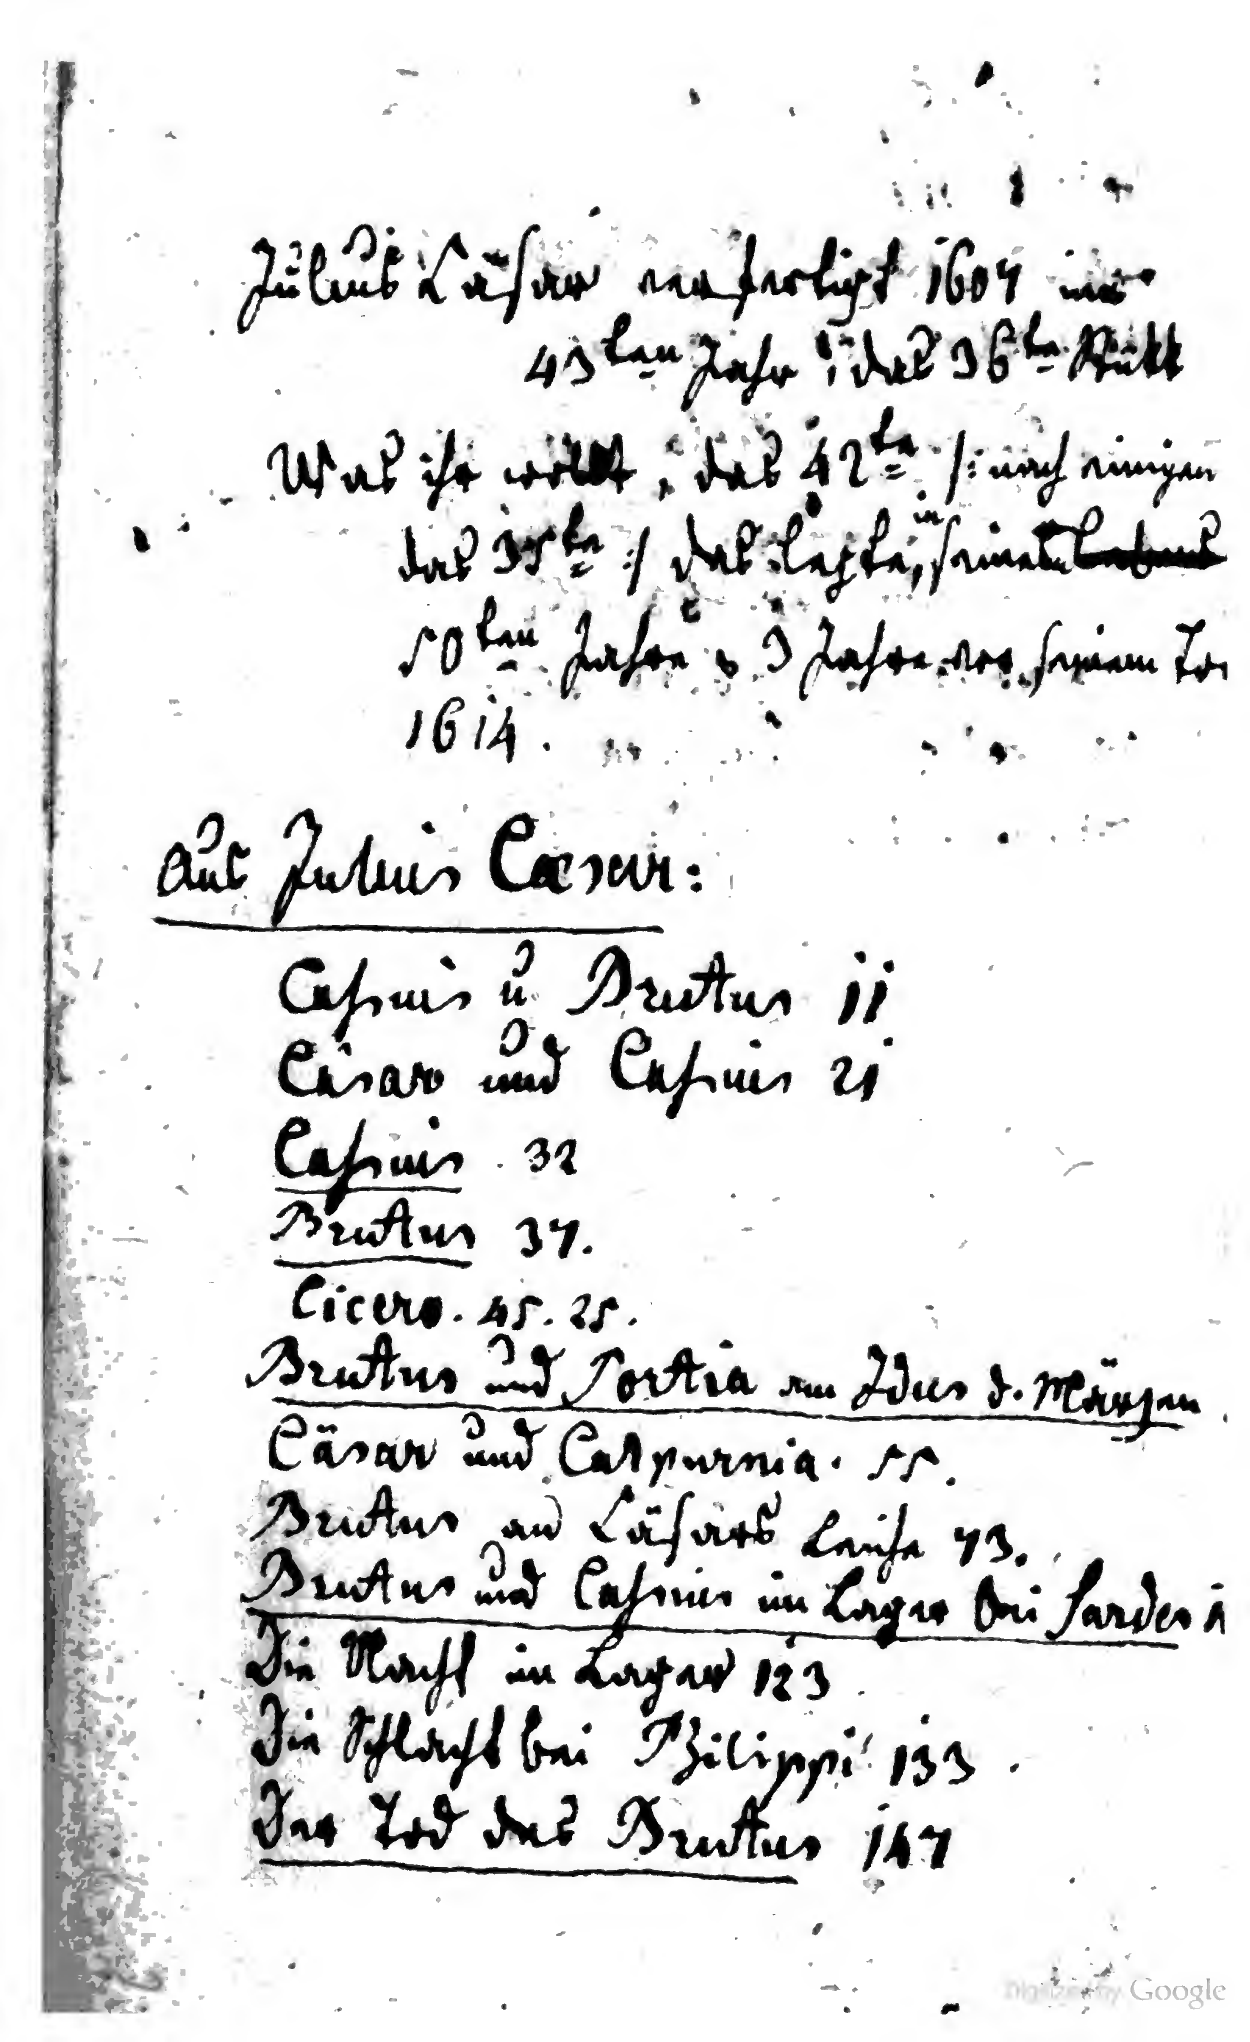 Julius Cäsar verfertigt 1607 im
43ten Jahr, das 36te Stück
Was ihr wollt, das 42te /: nach einigen
das 35te :/ das letzte, in seinem Lebens
50ten Jahre u 3 Jahre vor seinem To
1614.
Aus Julius Cæsar:
Caßius u Brutus 11
Cäsar und Caßius 21
Caßius 32
Brutus 37.
Cicero. 45. 25.
Brutus und Portia am Idus d. Märzen
Cäsar und Calpurnia. 55.
Brutus an Cäsars Leiche 73.
Brutus und Caßius im Lager bei Sardes 1
Die Nacht im Lager 123
Die Schlacht bei Philippi 133
Der Tod des Brutus 147
Digitized by Google